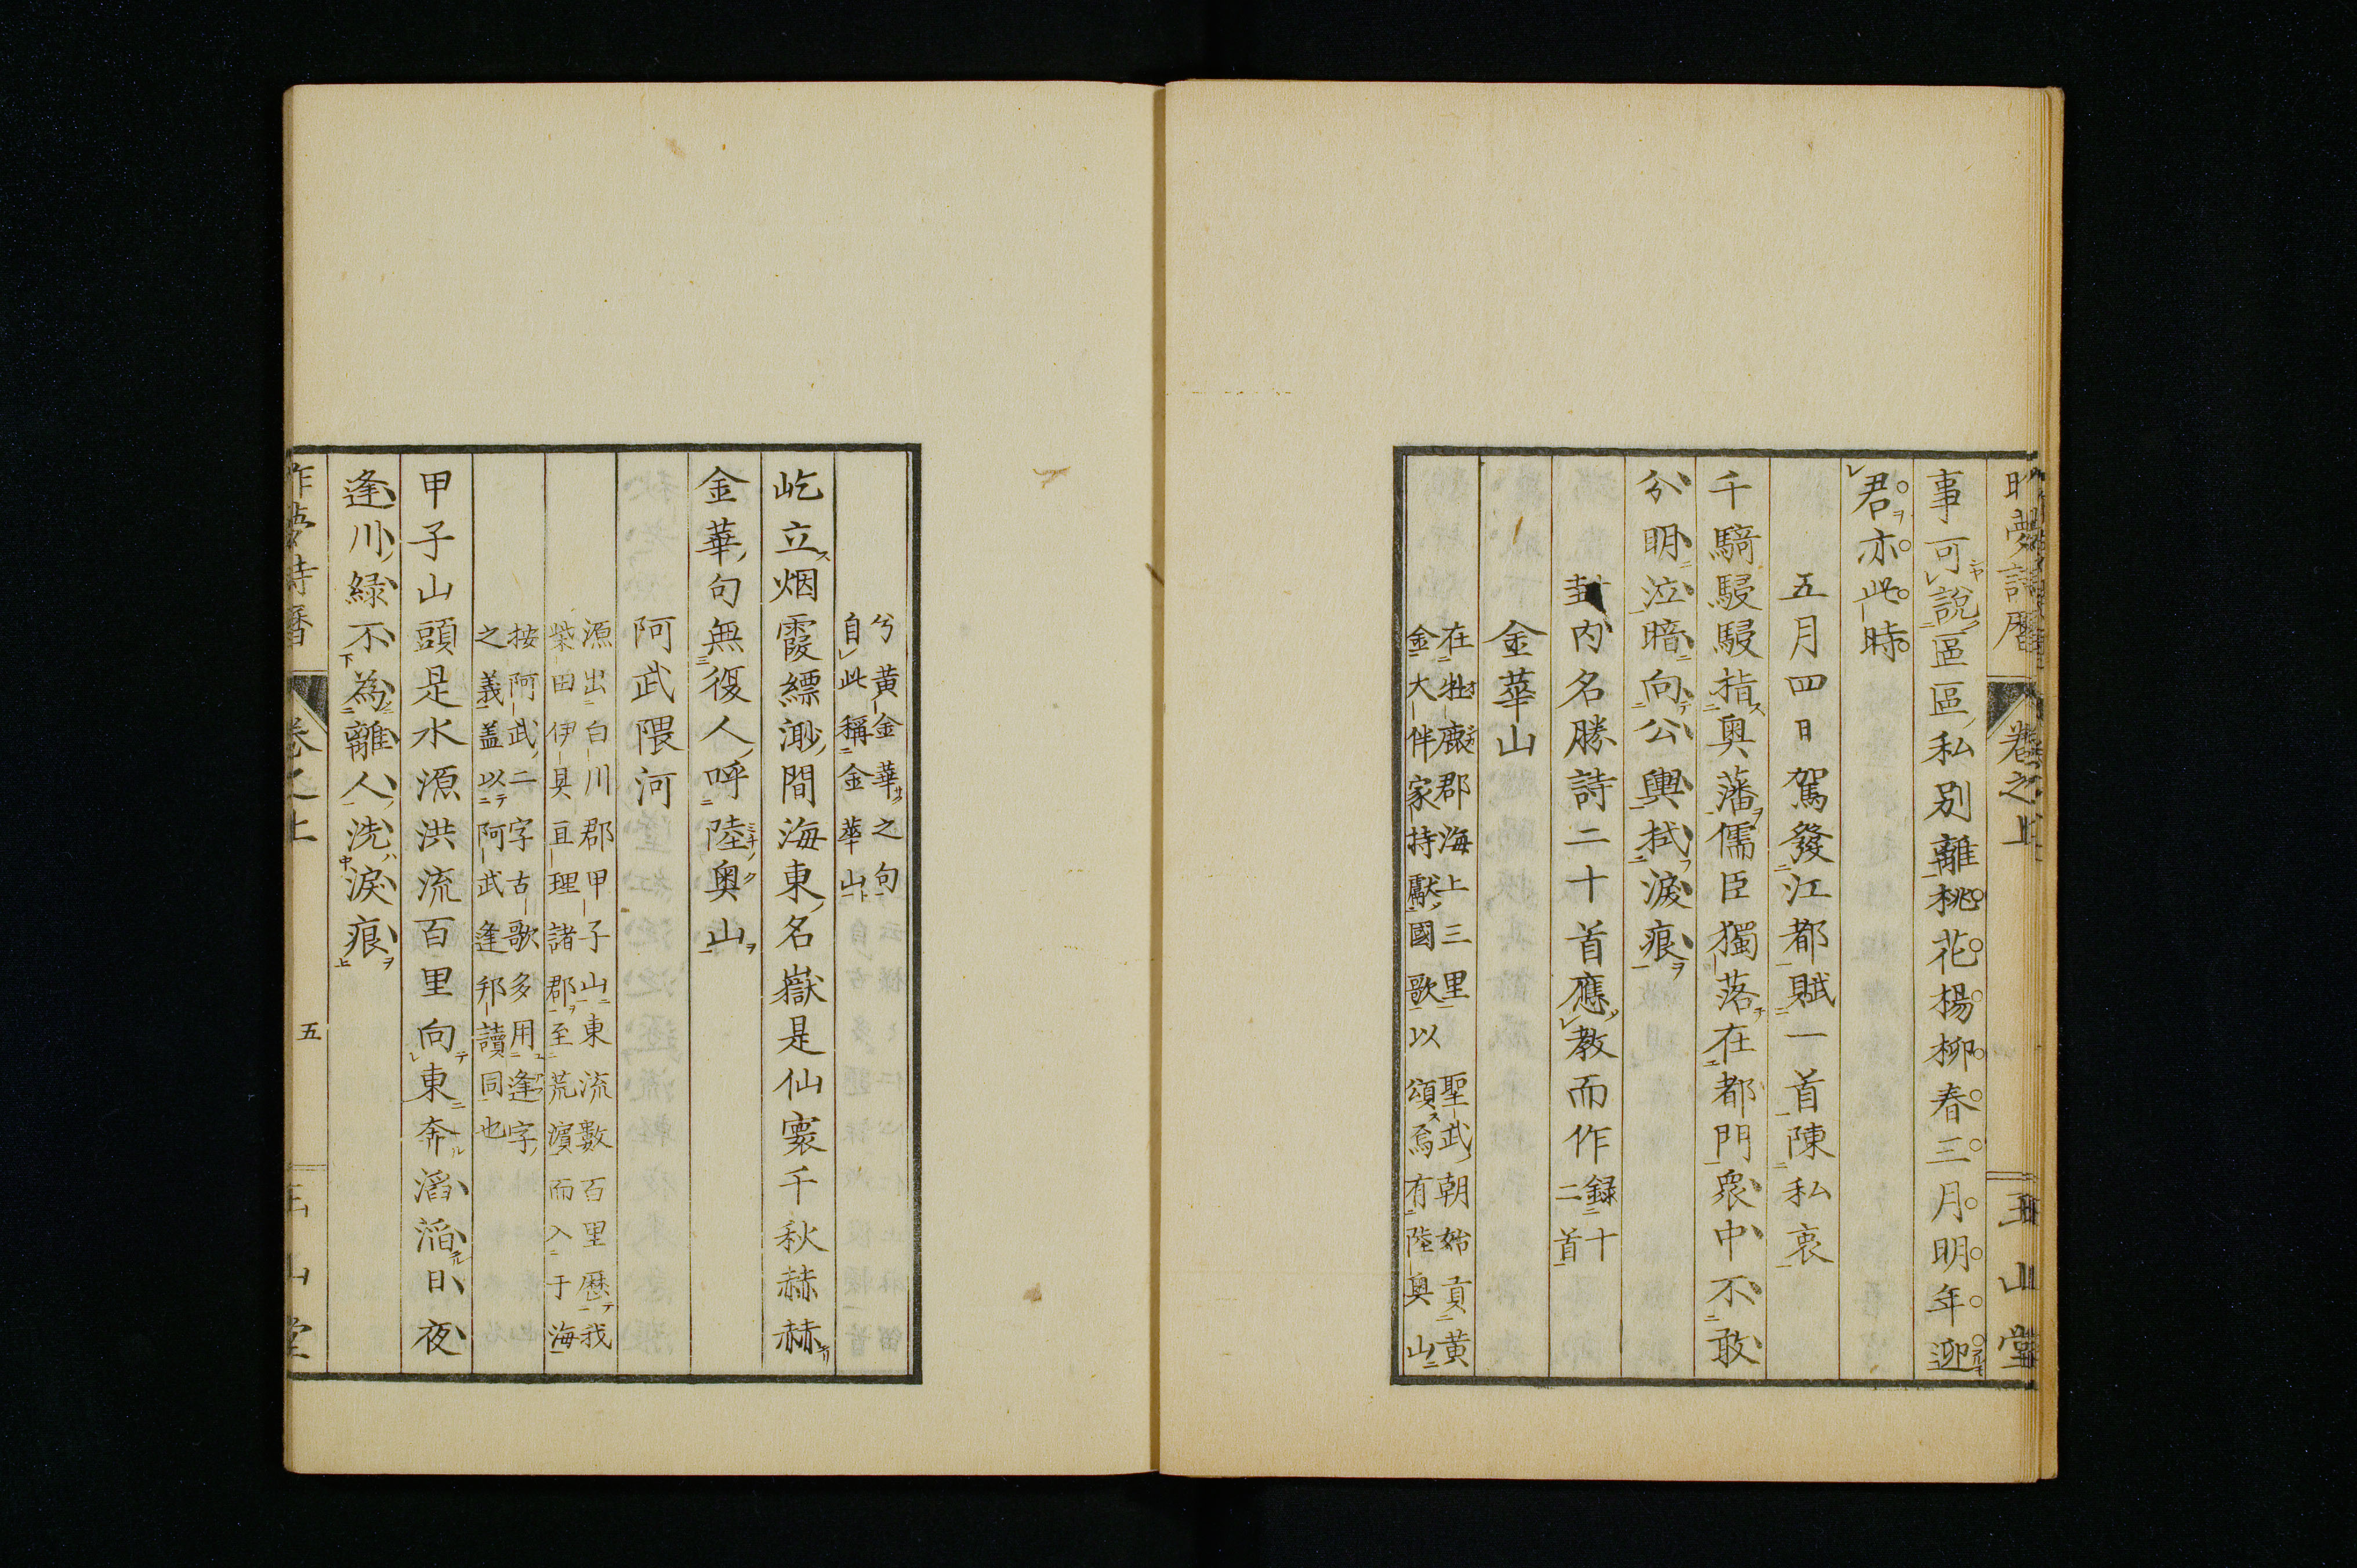 昨夢詩暦 卷之上 玉山堂
事可説區區私別離桃花楊柳春三月明年迎
君亦此時
五月四日駕發江都賦一首陳私衷
千騎駸駸指奥藩儒臣獨落在都門衆中不敢
分明泣暗向公輿拭淚痕
封内名勝詩二十首應教而作録十二首
金華山
在牡鹿郡海上三里 聖武朝始貢黄
金大伴家持獻國歌以 頌焉有陸奥山
兮黄金華之句
自此稱金華山
屹立烟霞縹渺間海東名嶽是仙寰千秋赫赫
金華句無復人呼陸奥山
阿武隈河
源出白川郡甲子山東流數百里歴我
柴田伊具亘理諸郡至荒濵而入于海
按阿武二字古歌多用逢字
之義盖以阿武逢邦讀同也
甲子山頭是水源洪流百里向東奔滔滔日夜
逢川緑不為離人洗淚痕
昨夢詩暦 卷之上 五 玉山堂